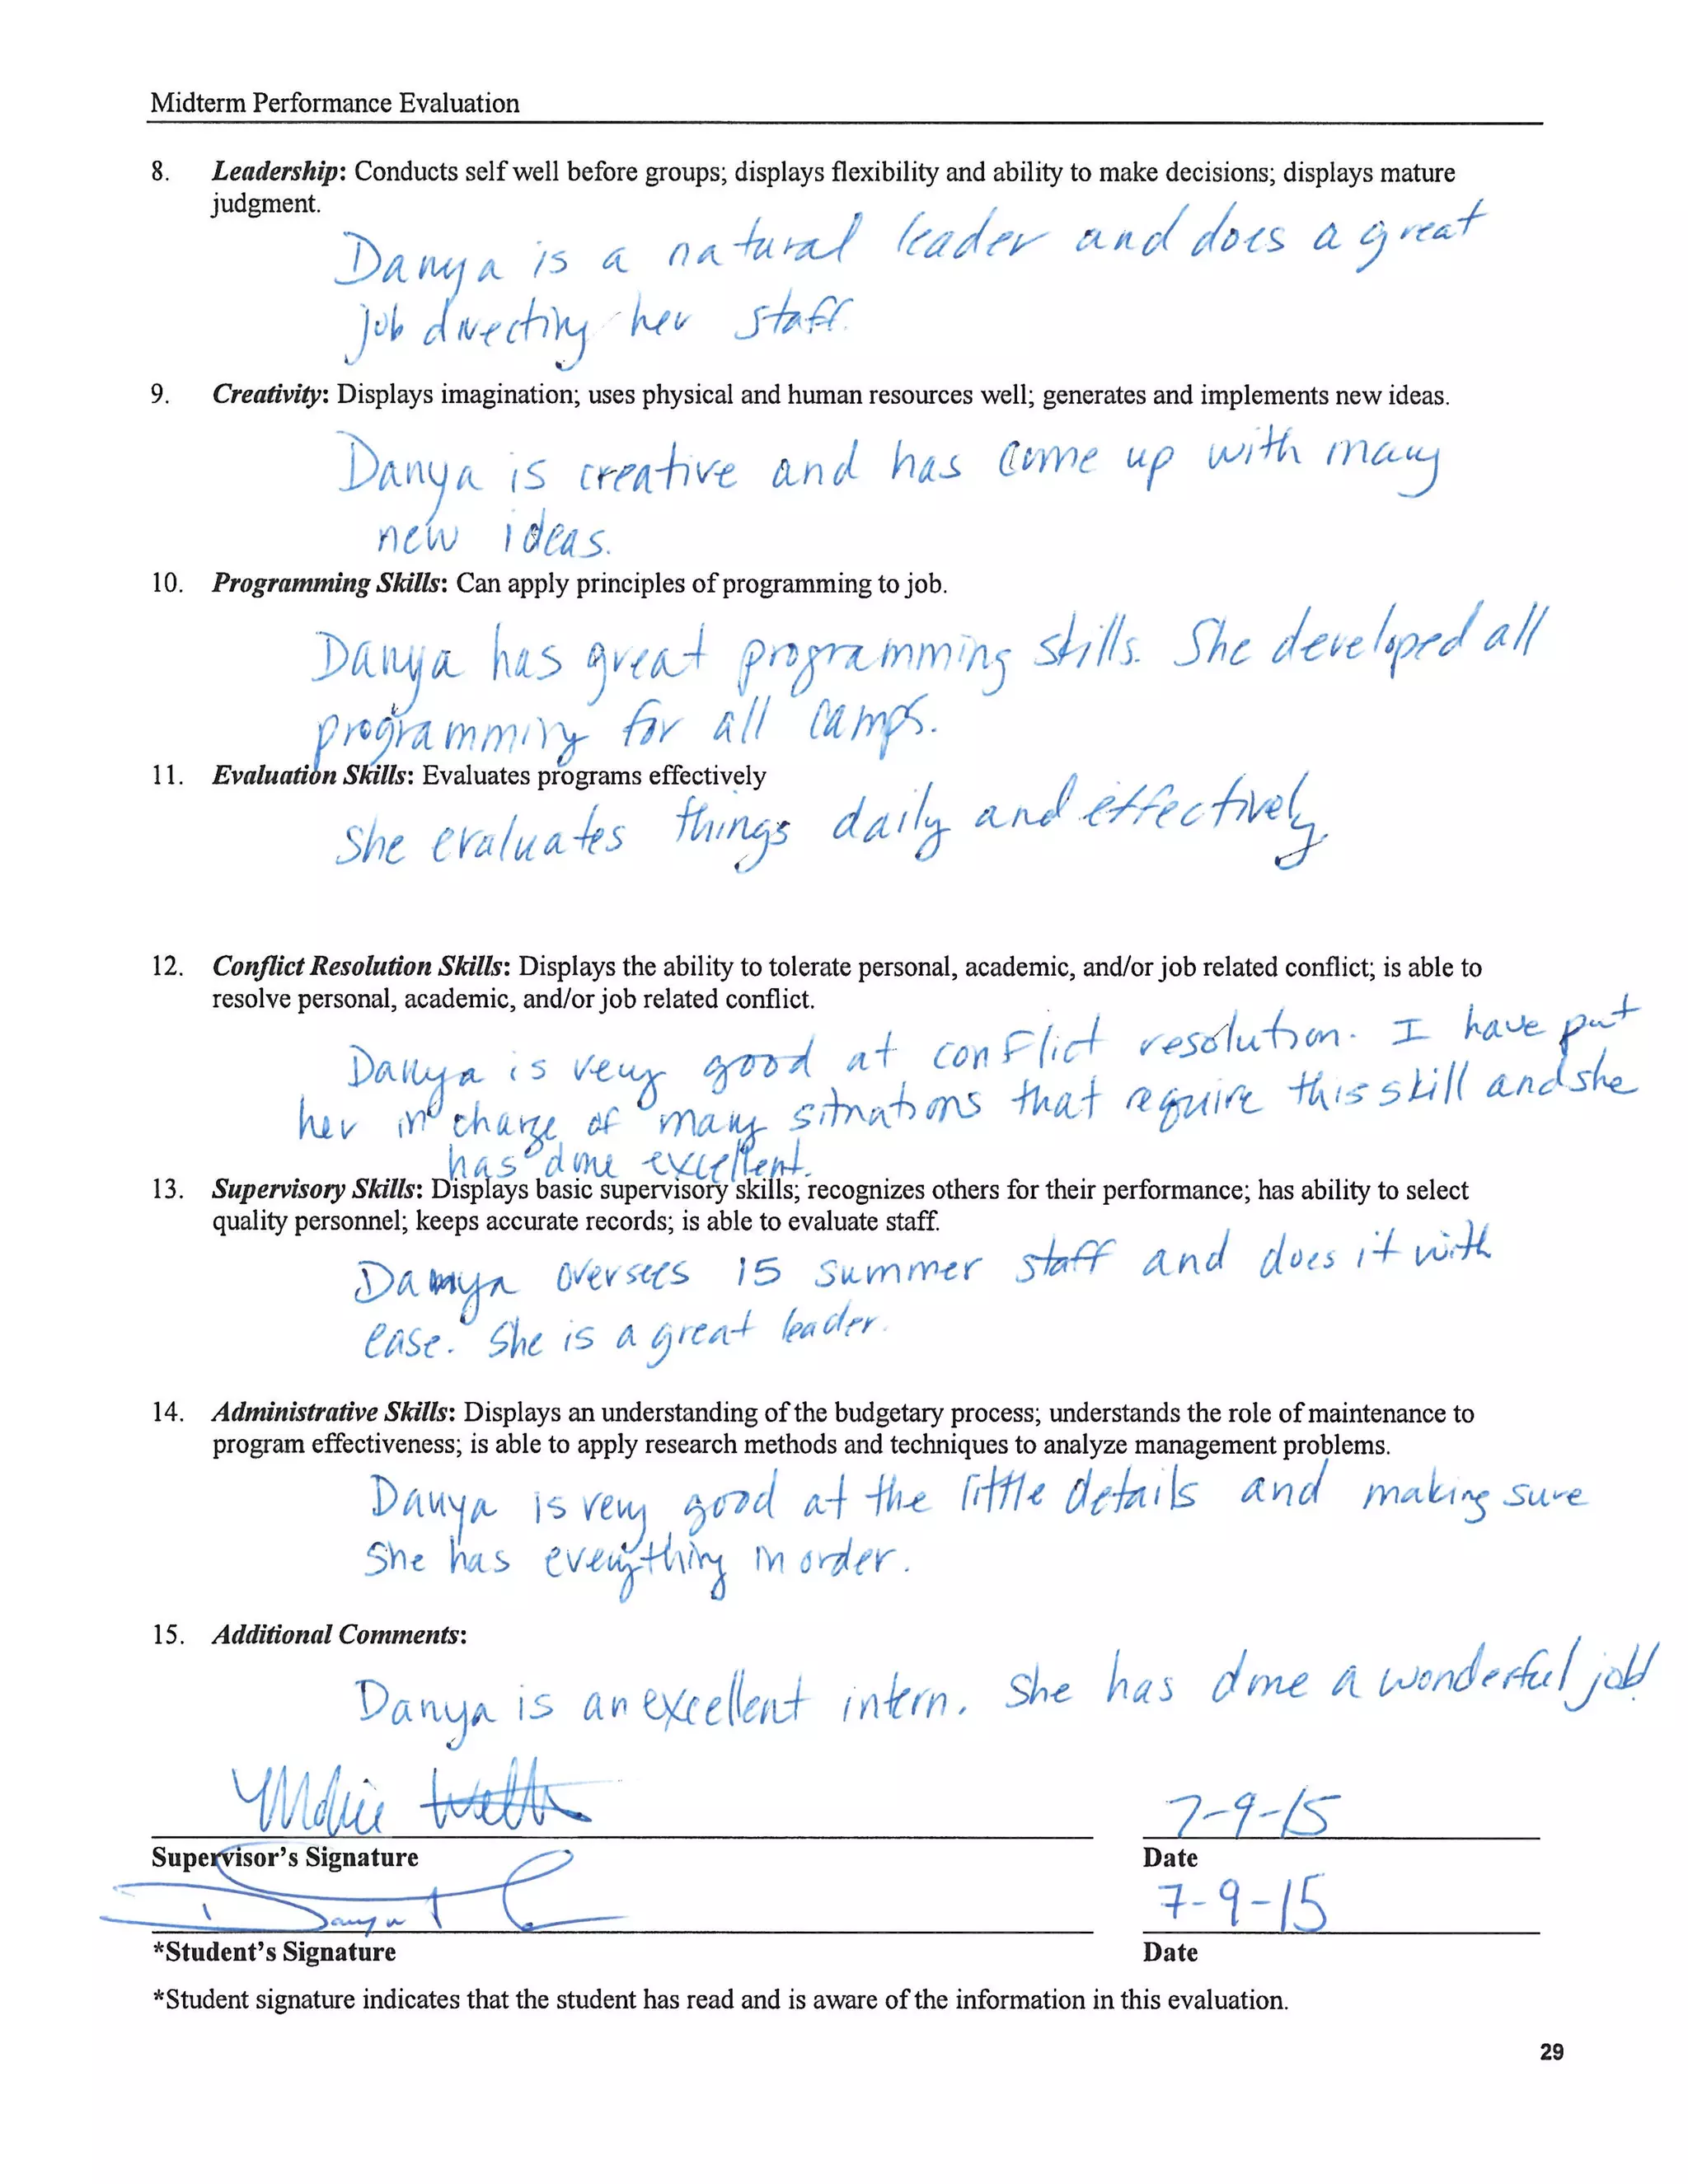 Midterm Performance Evaluation
8. Leadership: Conducts self well before groups; displays flexibility and ability to make decisions; displays mature
judgment.
Danya is a natural leader and does a great
job directing her staff.
9. Creativity: Displays imagination; uses physical and human resources well; generates and implements new ideas.
Danya is creative and has come up with many
new ideas.
10. Programming Skills: Can apply principles of programming to job.
Danya has great programming skills. She developed all
programming for all camps.
11. Evaluation Skills: Evaluates programs effectively
She evaluates things daily and effectively.
12. Conflict Resolution Skills: Displays the ability to tolerate personal, academic, and/or job related conflict; is able to
resolve personal, academic, and/or job related conflict.
Danya is very good at conflict resolution. I have put
her in charge of many situations that require this skill and she
has done excellent.
13. Supervisory Skills: Displays basic supervisory skills; recognizes others for their performance; has ability to select
quality personnel; keeps accurate records; is able to evaluate staff.
Danya oversees 15 summer staff and does it with
ease. She is a great leader.
14. Administrative Skills: Displays an understanding of the budgetary process; understands the role of maintenance to
program effectiveness; is able to apply research methods and techniques to analyze management problems.
Danya is very good at the little details and making sure
she has everything in order.
15. Additional Comments:
Danya is an excellent intern. She has done a wonderful job!
7-9-15
Supervisor's Signature Date
Danya 7-9-15
*Student's Signature Date
*Student signature indicates that the student has read and is aware of the information in this evaluation.
29